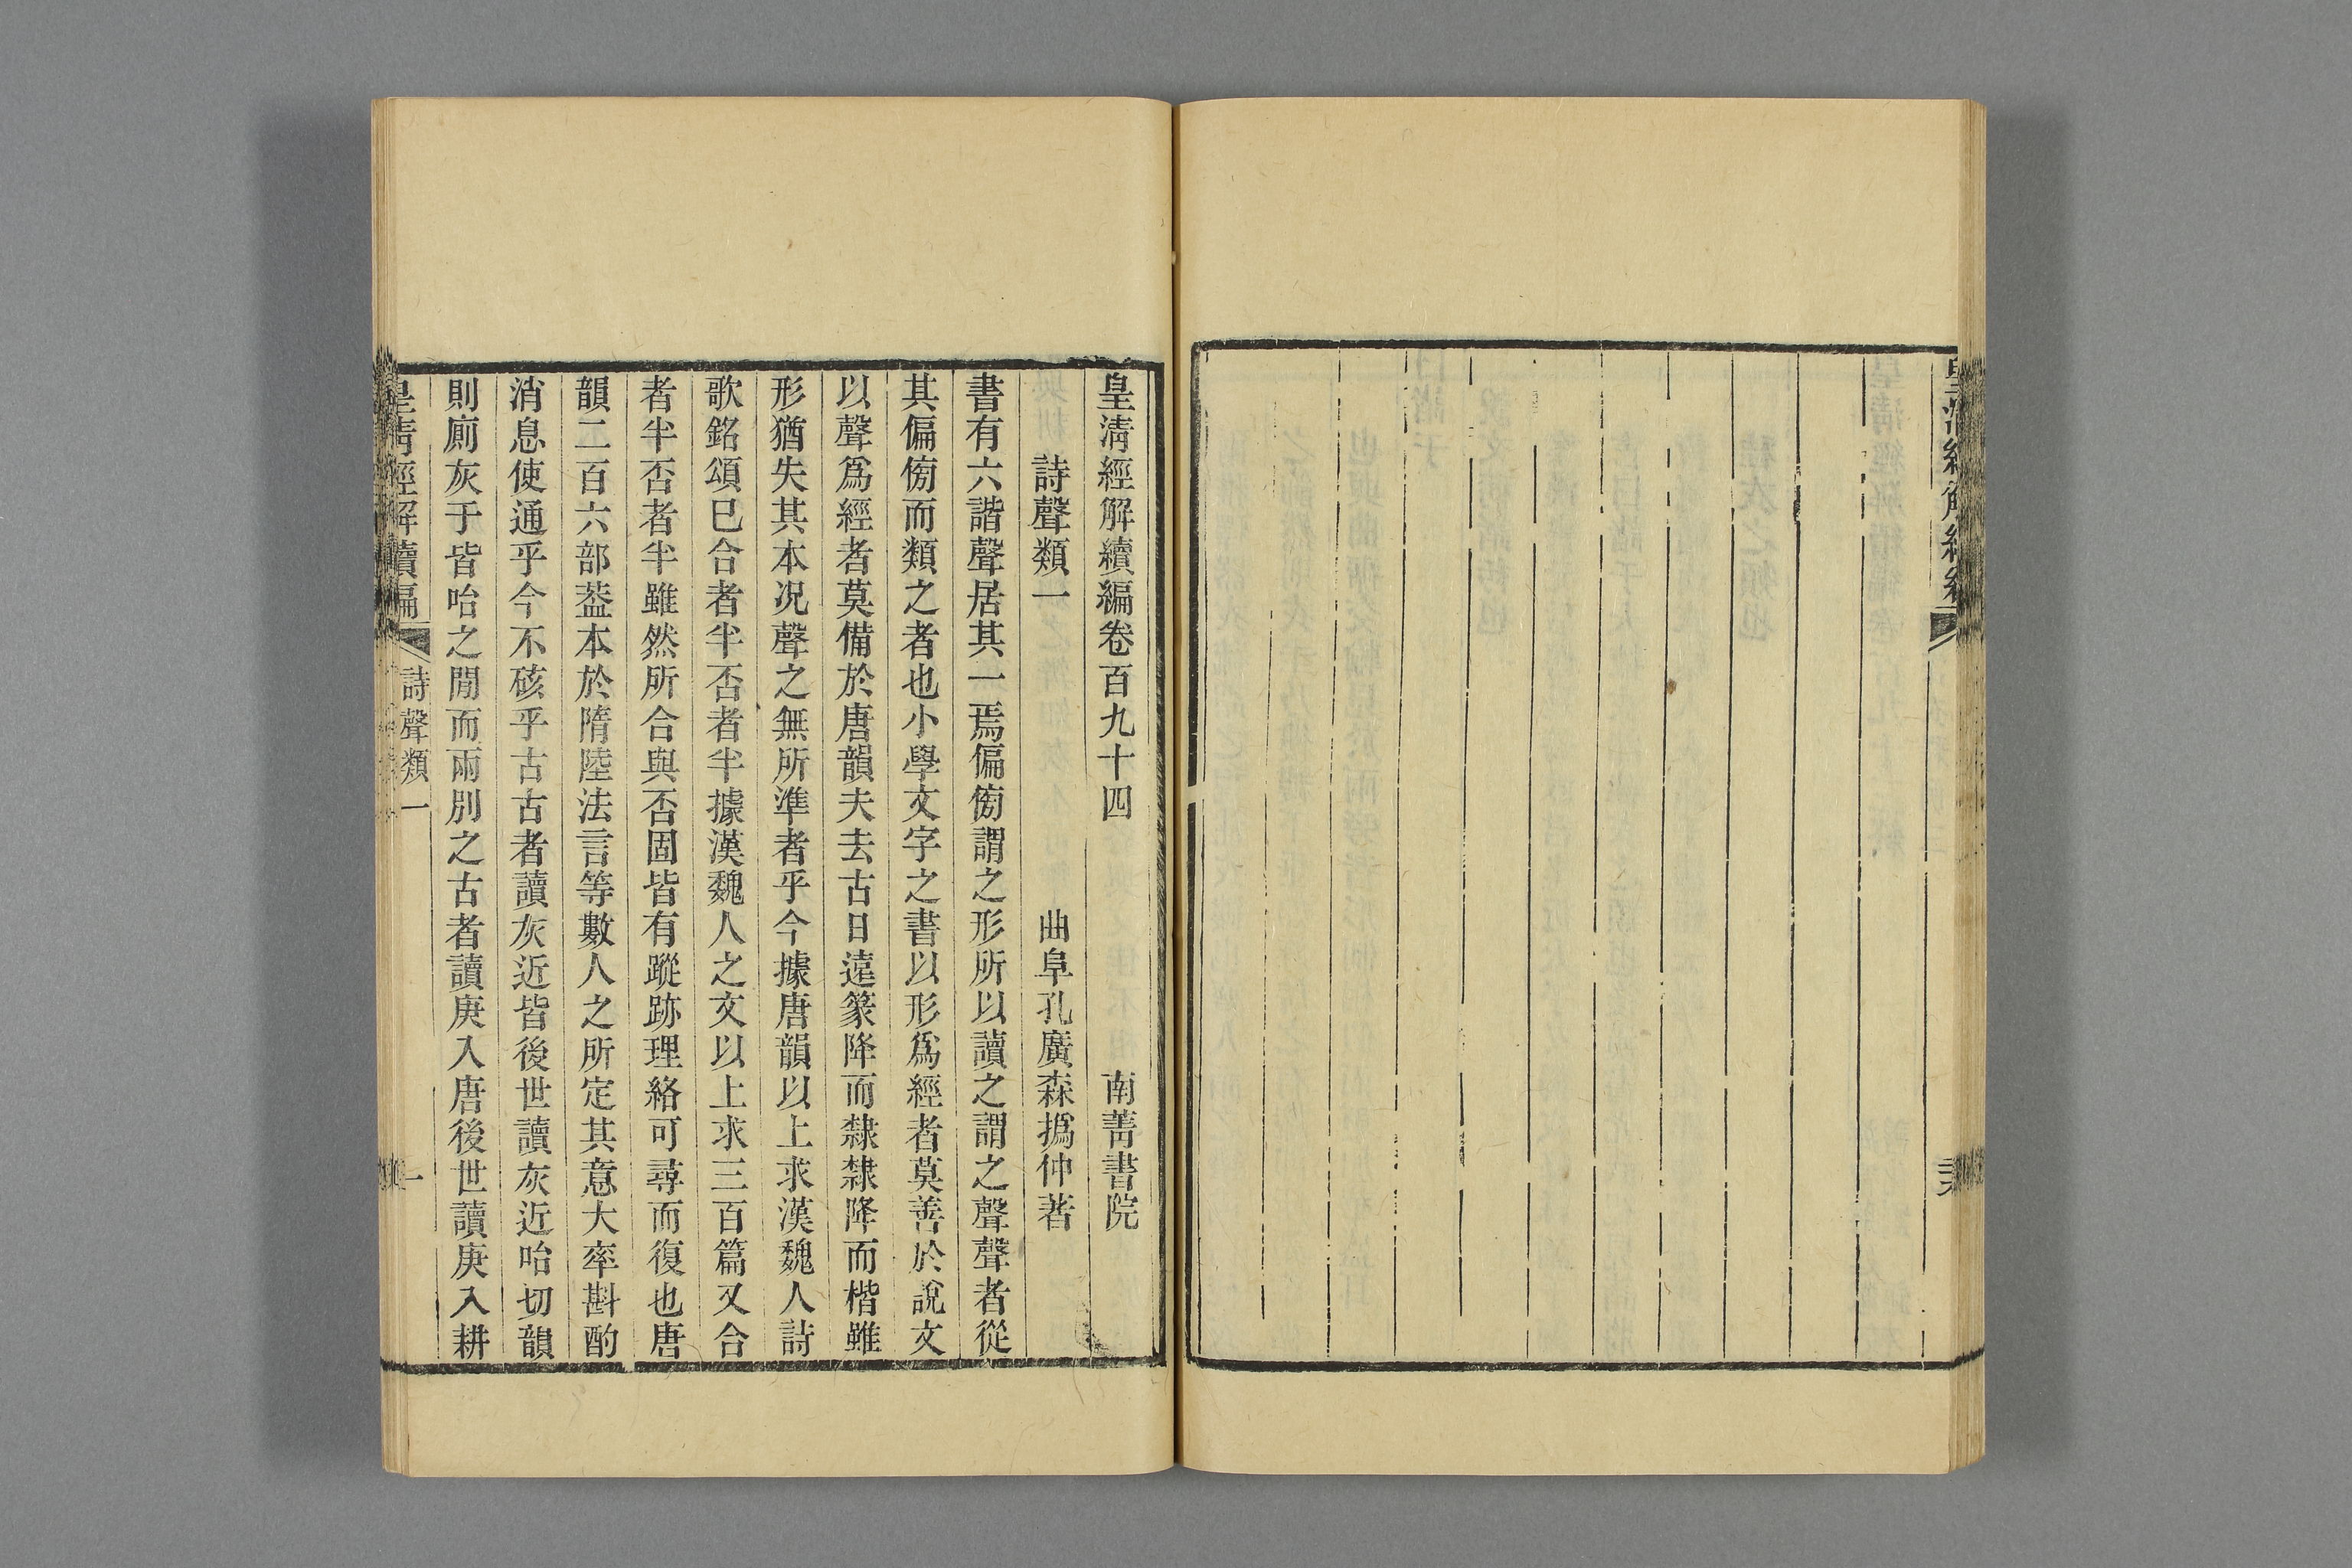 皇清經解續編卷百九十四 南菁書院
詩聲類一 曲阜孔廣森撝仲著
書有六諧聲居其一焉偏㑂謂之形所以讀之謂之聲聲者從
其偏㑂而類之者也小學文字之書以形爲經者莫善於說文
以聲爲經者莫備於唐韻夫去古日遠篆降而隸隸降而楷雖
形猶失其本况聲之無所準者乎今據唐韻以上求漢魏人詩
歌銘頌已合者半否者半據漢魏人之文以上求三百篇又合
者半否者半雖然所合與否固皆有蹤跡理絡可尋而復也唐
韻二百六部葢本於隋陸法言等數人之所定其意大率斟酌
消息使通乎今不硋乎古古者讀灰近皆後世讀灰近咍切韻
則廁灰于皆咍之閒而兩別之古者讀庚入唐後世讀庚入耕
皇清經解續編 詩聲類一 一